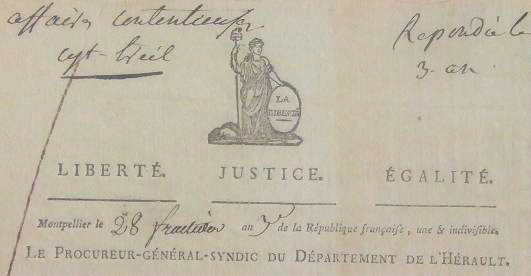 affaires contentieuses
Repondu le
3. an
LA
LIBERTÉ
LIBERTÉ. JUSTICE. ÉGALITÉ.
Montpellier le 28 fructidor an 3e de la République française, une & indivisible.
LE PROCUREUR-GÉNÉRAL-SYNDIC DU DÉPARTEMENT DE L'HÉRAULT.